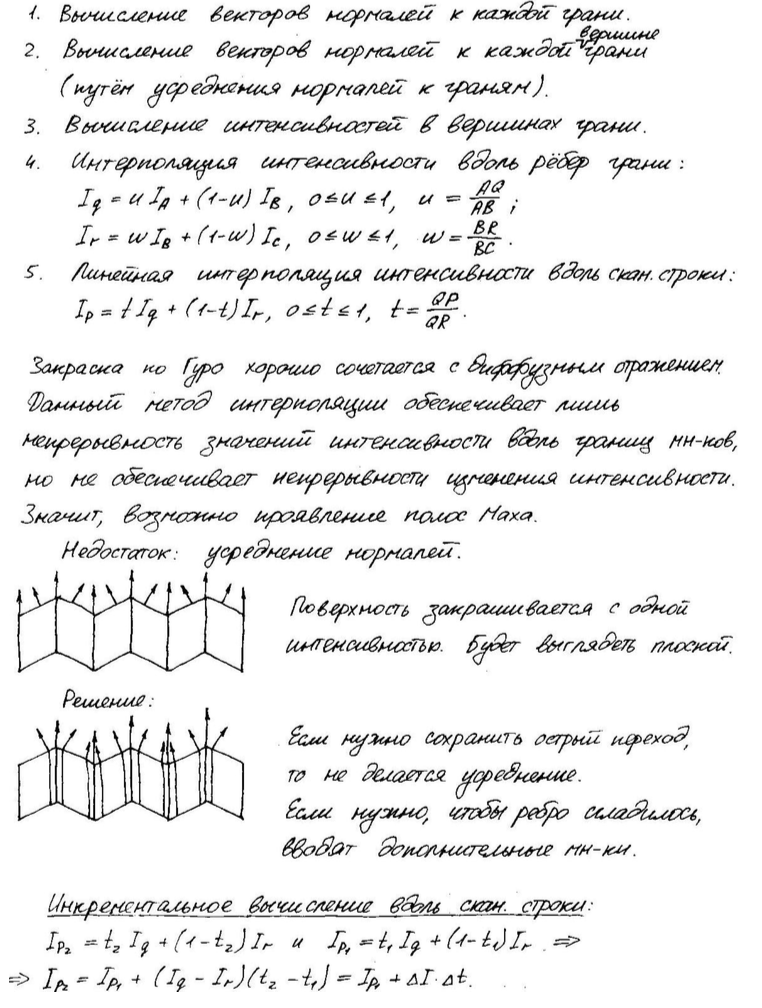 1. Вычисление векторов нормалей к каждой грани.
2. Вычисление векторов нормалей к каждой вершине грани
(путём усреднения нормалей к граням).
3. Вычисление интенсивностей в вершинах грани.
4. Интерполяция интенсивности вдоль рёбер грани:
I_q = u I_A + (1-u) I_B, 0≤u≤1, u = AQ/AB;
I_r = w I_B + (1-w) I_C, 0≤w≤1, w = BR/BC.
5. Линейная интерполяция интенсивности вдоль скан. строки:
I_p = t I_q + (1-t) I_r, 0≤t≤1, t = QP/QR.
Закраска по Гуро хорошо сочетается с диффузным отражением.
Данный метод интерполяции обеспечивает лишь
непрерывность значений интенсивности вдоль границ мн-ков,
но не обеспечивает непрерывности изменения интенсивности.
Значит, возможно проявление полос Маха.
Недостаток: усреднение нормалей.
Поверхность закрашивается с одной
интенсивностью. Будет выглядеть плоской.
Решение:
Если нужно сохранить острый переход,
то не делается усреднение.
Если нужно, чтобы ребро сгладилось,
вводят дополнительные мн-ки.
Инкрементальное вычисление вдоль скан. строки:
I_P₂ = t₂ I_q + (1-t₂) I_r и I_P₁ = t₁ I_q + (1-t₁) I_r ⇒
⇒ I_P₂ = I_P₁ + (I_q - I_r)(t₂ - t₁) = I_P₁ + ΔI·Δt.